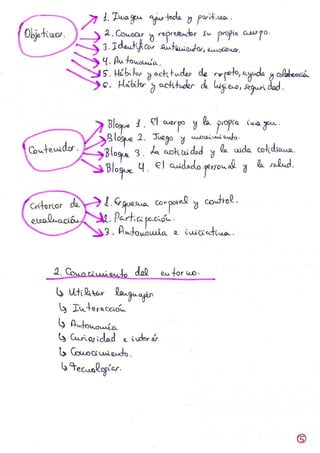 Objetivos.
1. Imagen ajustada y positiva.
2. Conocer y representar su propio cuerpo.
3. Identificar sentimientos, emociones.
4. Autonomía.
5. Hábitos y actitudes de respeto, ayuda y colaboración
6. Hábitos y actitudes de higiene, seguridad.
Contenidos.
Bloque 1. El cuerpo y la propia imagen.
Bloque 2. Juego y movimiento.
Bloque 3. La actividad y la vida cotidiana.
Bloque 4. El cuidado personal y la salud.
Criterios de evaluación
1. Esquema corporal y control.
2. Participación.
3. Autonomía e iniciativa.
2. Conocimiento del entorno.
↳ Utilizar lenguajes
↳ Interacción
↳ Autonomía
↳ Curiosidad e interés
↳ Conocimiento.
↳ Tecnologías.
5